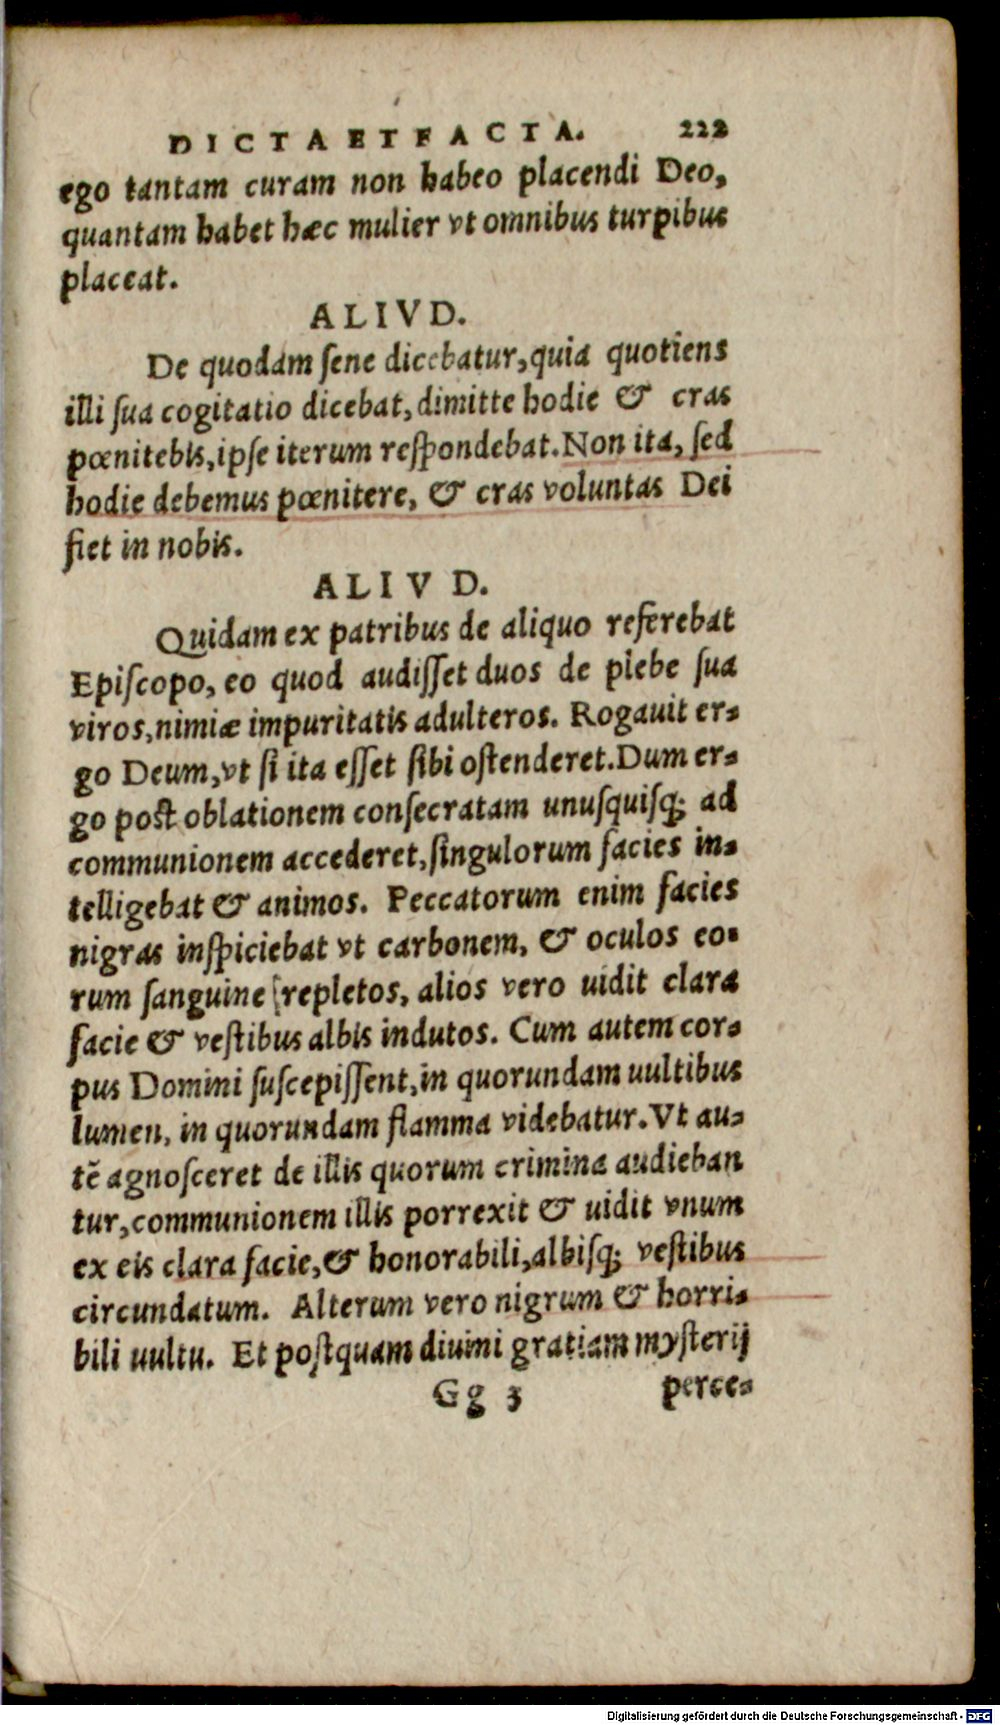 DICTA ET FACTA. 222
ego tantam curam non habeo placendi Deo,
quantam habet hæc mulier vt omnibus turpibus
placeat.
ALIVD.
De quodam sene dicebatur, quia quotiens
illi sua cogitatio dicebat, dimitte hodie & cras
pœnitebis, ipse iterum respondebat. Non ita, sed
hodie debemus pœnitere, & cras voluntas Dei
fiet in nobis.
ALIVD.
Quidam ex patribus de aliquo referebat
Episcopo, eo quod audisset duos de plebe sua
viros, nimiæ impuritatis adulteros. Rogauit er-
go Deum, vt si ita esset sibi ostenderet. Dum er-
go post oblationem consecratam unusquisq; ad
communionem accederet, singulorum facies in-
telligebat & animos. Peccatorum enim facies
nigras inspiciebat vt carbonem, & oculos eo-
rum sanguine repletos, alios vero uidit clara
facie & vestibus albis indutos. Cum autem cor-
pus Domini suscepissent, in quorundam uultibus
lumen, in quorundam flamma videbatur. Vt au-
tē agnosceret de illis quorum crimina audieban
tur, communionem illis porrexit & uidit vnum
ex eis clara facie, & honorabili, albisq; vestibus
circundatum. Alterum vero nigrum & horri-
bili uultu. Et postquam diuini gratiam mysterij
Gg 3 perce-
Digitalisierung gefördert durch die Deutsche Forschungsgemeinschaft - DFG